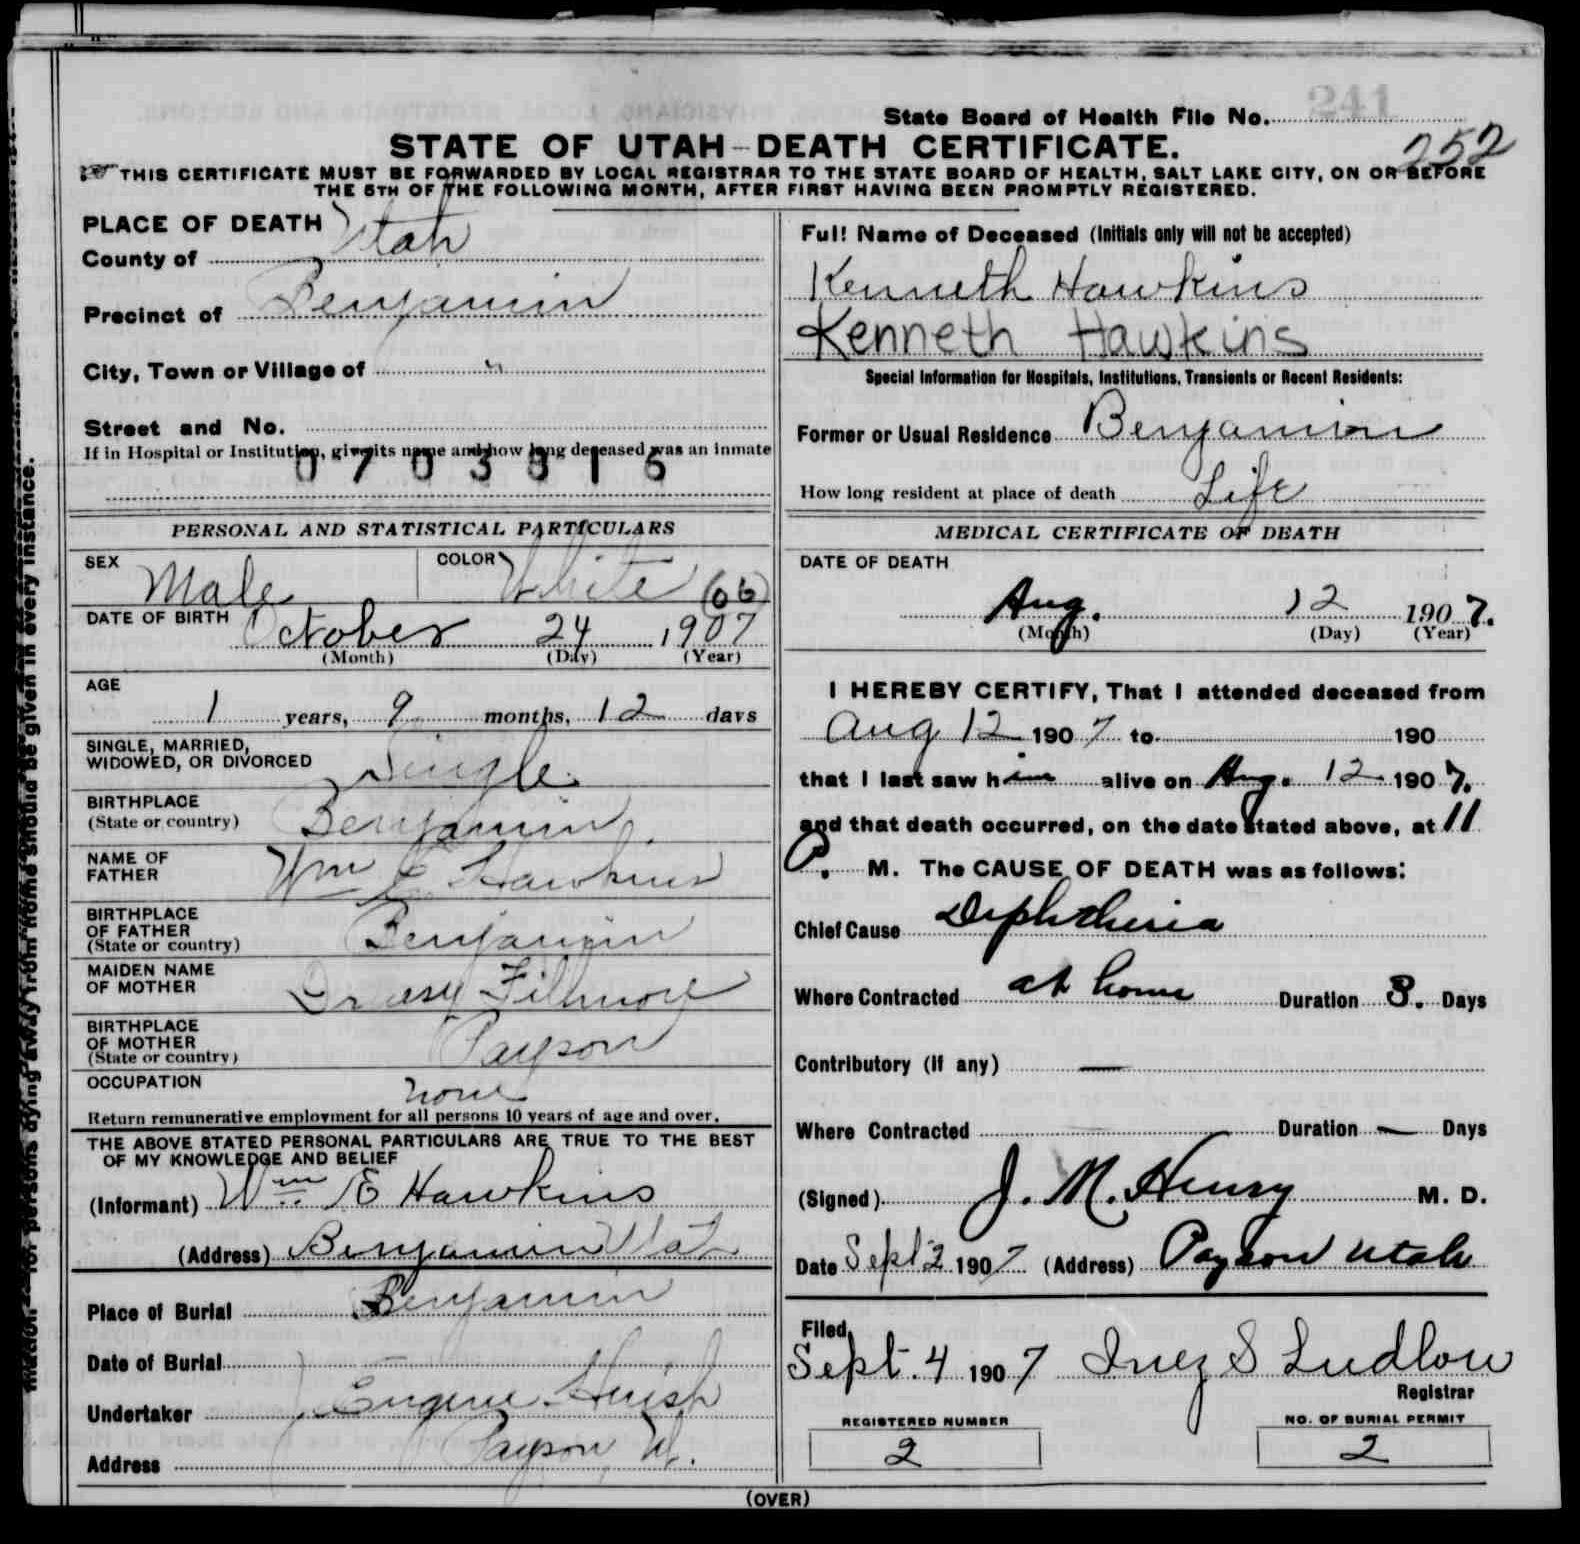 241
State Board of Health File No.
252
STATE OF UTAH—DEATH CERTIFICATE.
THIS CERTIFICATE MUST BE FORWARDED BY LOCAL REGISTRAR TO THE STATE BOARD OF HEALTH, SALT LAKE CITY, ON OR BEFORE
THE 5TH OF THE FOLLOWING MONTH, AFTER FIRST HAVING BEEN PROMPTLY REGISTERED.
PLACE OF DEATH
County of Utah
Precinct of Benjamin
City, Town or Village of "
Street and No.
If in Hospital or Institution, give its name and how long deceased was an inmate
PERSONAL AND STATISTICAL PARTICULARS
SEX Male COLOR White
(06)
DATE OF BIRTH October 24 1907
(Month) (Day) (Year)
AGE
1 years, 9 months, 12 days
SINGLE, MARRIED,
WIDOWED, OR DIVORCED Single
BIRTHPLACE
(State or country) Benjamin
NAME OF
FATHER Wm E Hawkins
BIRTHPLACE
OF FATHER
(State or country) Benjamin
MAIDEN NAME
OF MOTHER Fillmore
BIRTHPLACE
OF MOTHER
(State or country) Payson
OCCUPATION none
Return remunerative employment for all persons 10 years of age and over.
THE ABOVE STATED PERSONAL PARTICULARS ARE TRUE TO THE BEST
OF MY KNOWLEDGE AND BELIEF
(Informant) Wm E Hawkins
(Address) Benjamin Utah
Place of Burial Benjamin
Date of Burial
Undertaker Eugene Huish
Address Payson U.
Full Name of Deceased (Initials only will not be accepted)
Kenneth Hawkins
Kenneth Hawkins
Special Information for Hospitals, Institutions, Transients or Recent Residents:
Former or Usual Residence Benjamin
How long resident at place of death Life
MEDICAL CERTIFICATE OF DEATH
DATE OF DEATH
Aug. 12 1907.
(Month) (Day) (Year)
I HEREBY CERTIFY, That I attended deceased from
Aug 12 1907 to 190
that I last saw him alive on Aug. 12 1907.
and that death occurred, on the date stated above, at 11
P. M. The CAUSE OF DEATH was as follows:
Chief Cause Diphtheria
Where Contracted at home Duration 3. Days
Contributory (if any) —
Where Contracted Duration — Days
(Signed) J. M. Henry M. D.
Date Sept 2 1907 (Address) Payson Utah
Filed
Sept. 4 1907 Inez S Ludlow
Registrar
REGISTERED NUMBER NO. OF BURIAL PERMIT
2 2
(OVER)
for persons dying away from home should be given in every instance.